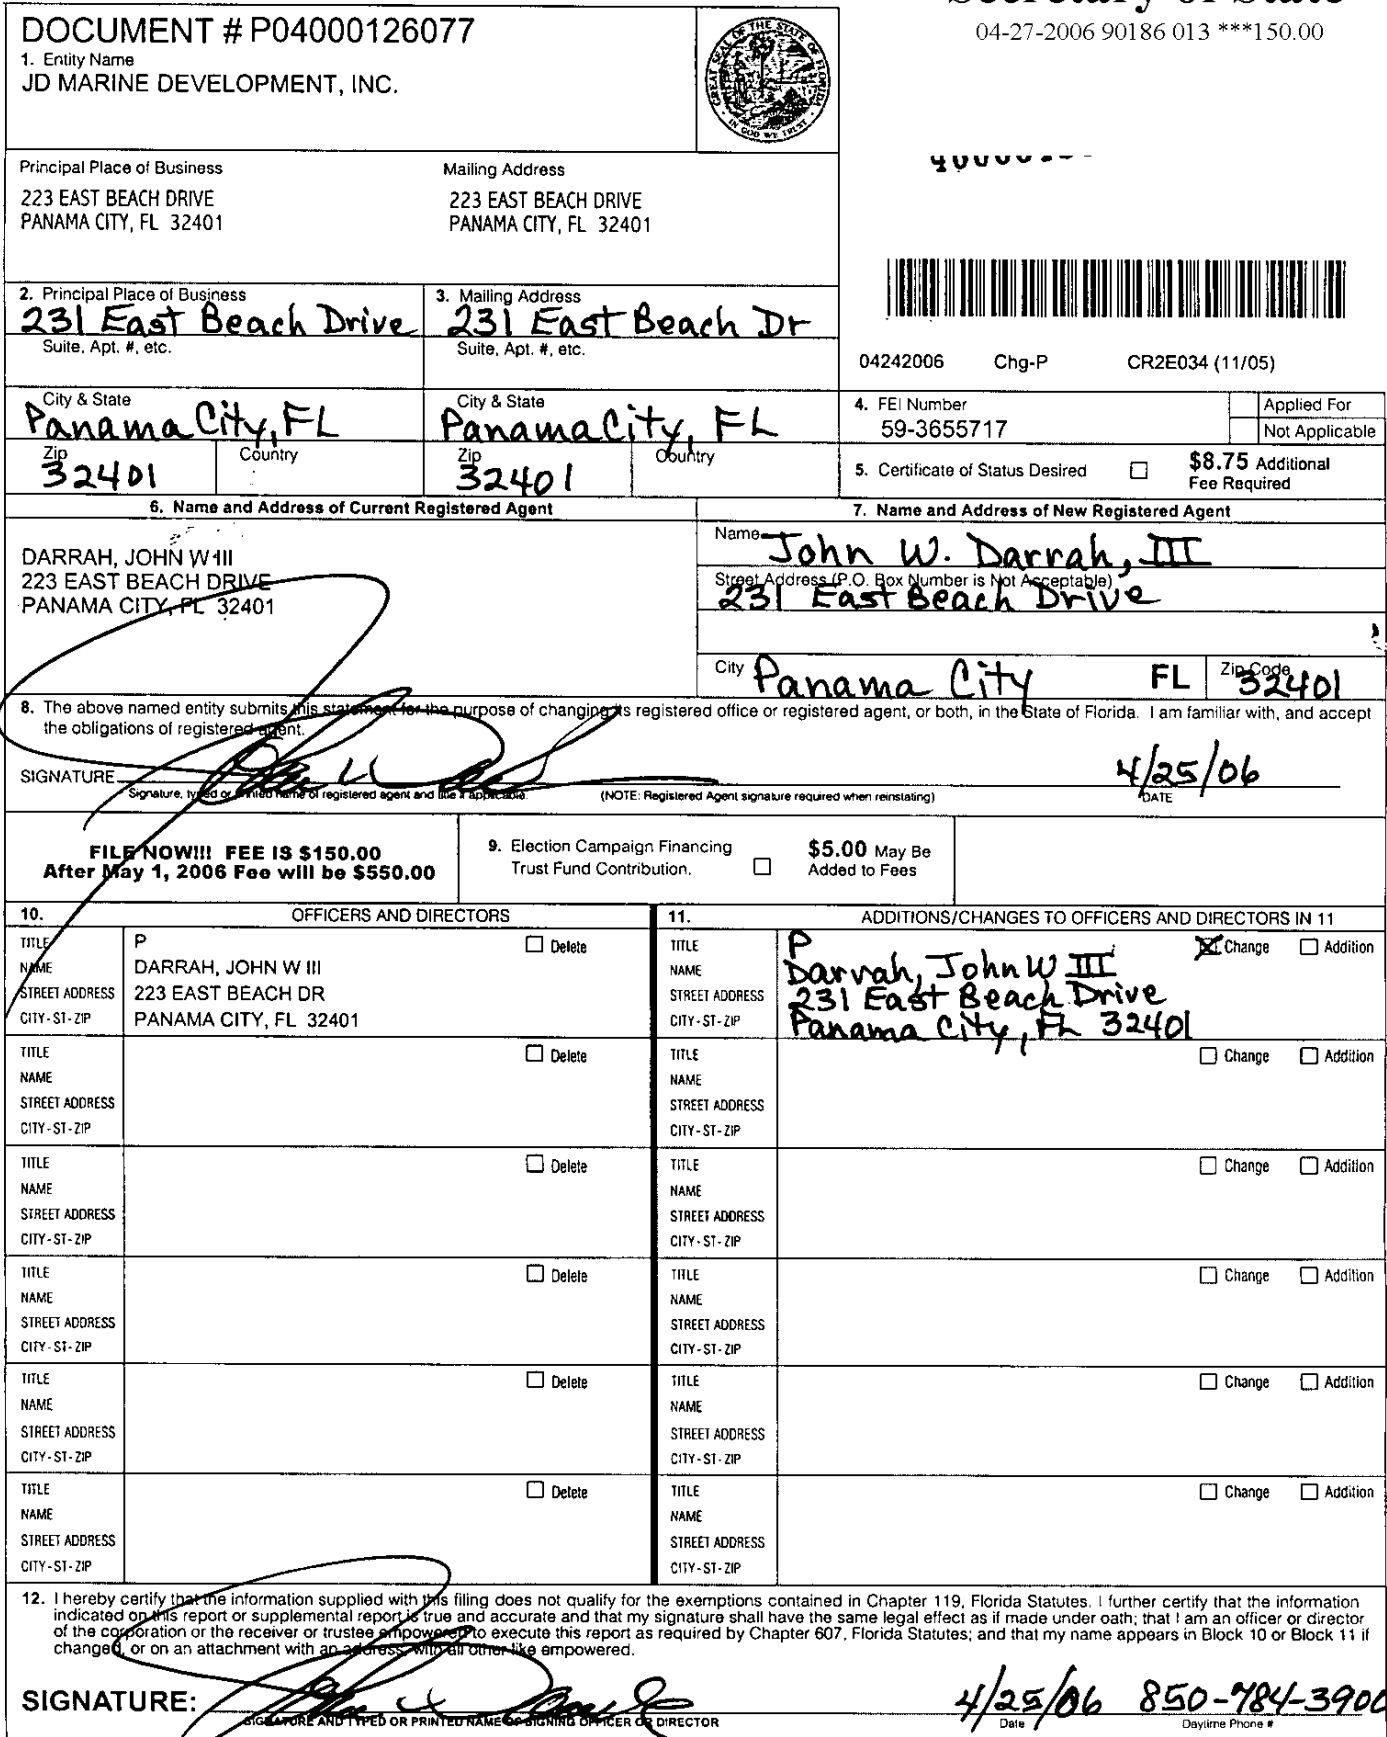 04-27-2006 90186 013 ***150.00
DOCUMENT # P04000126077
1. Entity Name
JD MARINE DEVELOPMENT, INC.
GREAT SEAL OF THE STATE OF FLORIDA
IN GOD WE TRUST
Principal Place of Business
223 EAST BEACH DRIVE
PANAMA CITY, FL 32401
Mailing Address
223 EAST BEACH DRIVE
PANAMA CITY, FL 32401
2. Principal Place of Business
231 East Beach Drive
Suite, Apt. #, etc.
City & State
Panama City, FL
Zip Country
32401
3. Mailing Address
231 East Beach Dr
Suite, Apt. #, etc.
City & State
Panama City, FL
Zip Country
32401
04242006 Chg-P CR2E034 (11/05)
4. FEI Number
59-3655717
Applied For
Not Applicable
5. Certificate of Status Desired ☐ $8.75 Additional
Fee Required
6. Name and Address of Current Registered Agent
DARRAH, JOHN W III
223 EAST BEACH DRIVE
PANAMA CITY, FL 32401
7. Name and Address of New Registered Agent
Name John W. Darrah, III
Street Address (P.O. Box Number is Not Acceptable)
231 East Beach Drive
City Panama City FL Zip Code 32401
8. The above named entity submits this statement for the purpose of changing its registered office or registered agent, or both, in the State of Florida. I am familiar with, and accept
the obligations of registered agent.
SIGNATURE 4/25/06
Signature, typed or printed name of registered agent and title if applicable. (NOTE: Registered Agent signature required when reinstating) DATE
FILE NOW!!! FEE IS $150.00
After May 1, 2006 Fee will be $550.00
9. Election Campaign Financing
Trust Fund Contribution. ☐
$5.00 May Be
Added to Fees
10. OFFICERS AND DIRECTORS
11. ADDITIONS/CHANGES TO OFFICERS AND DIRECTORS IN 11
TITLE P ☐ Delete
NAME DARRAH, JOHN W III
STREET ADDRESS 223 EAST BEACH DR
CITY-ST-ZIP PANAMA CITY, FL 32401
TITLE P ☒ Change ☐ Addition
NAME Darrah, John W III
STREET ADDRESS 231 East Beach Drive
CITY-ST-ZIP Panama City, FL 32401
TITLE ☐ Delete
NAME
STREET ADDRESS
CITY-ST-ZIP
TITLE ☐ Change ☐ Addition
NAME
STREET ADDRESS
CITY-ST-ZIP
TITLE ☐ Delete
NAME
STREET ADDRESS
CITY-ST-ZIP
TITLE ☐ Change ☐ Addition
NAME
STREET ADDRESS
CITY-ST-ZIP
TITLE ☐ Delete
NAME
STREET ADDRESS
CITY-ST-ZIP
TITLE ☐ Change ☐ Addition
NAME
STREET ADDRESS
CITY-ST-ZIP
TITLE ☐ Delete
NAME
STREET ADDRESS
CITY-ST-ZIP
TITLE ☐ Change ☐ Addition
NAME
STREET ADDRESS
CITY-ST-ZIP
TITLE ☐ Delete
NAME
STREET ADDRESS
CITY-ST-ZIP
TITLE ☐ Change ☐ Addition
NAME
STREET ADDRESS
CITY-ST-ZIP
12. I hereby certify that the information supplied with this filing does not qualify for the exemptions contained in Chapter 119, Florida Statutes. I further certify that the information
indicated on this report or supplemental report is true and accurate and that my signature shall have the same legal effect as if made under oath; that I am an officer or director
of the corporation or the receiver or trustee empowered to execute this report as required by Chapter 607, Florida Statutes; and that my name appears in Block 10 or Block 11 if
changed, or on an attachment with an address, with all other like empowered.
SIGNATURE: 4/25/06 850-784-3900
SIGNATURE AND TYPED OR PRINTED NAME OF SIGNING OFFICER OR DIRECTOR Date Daytime Phone #